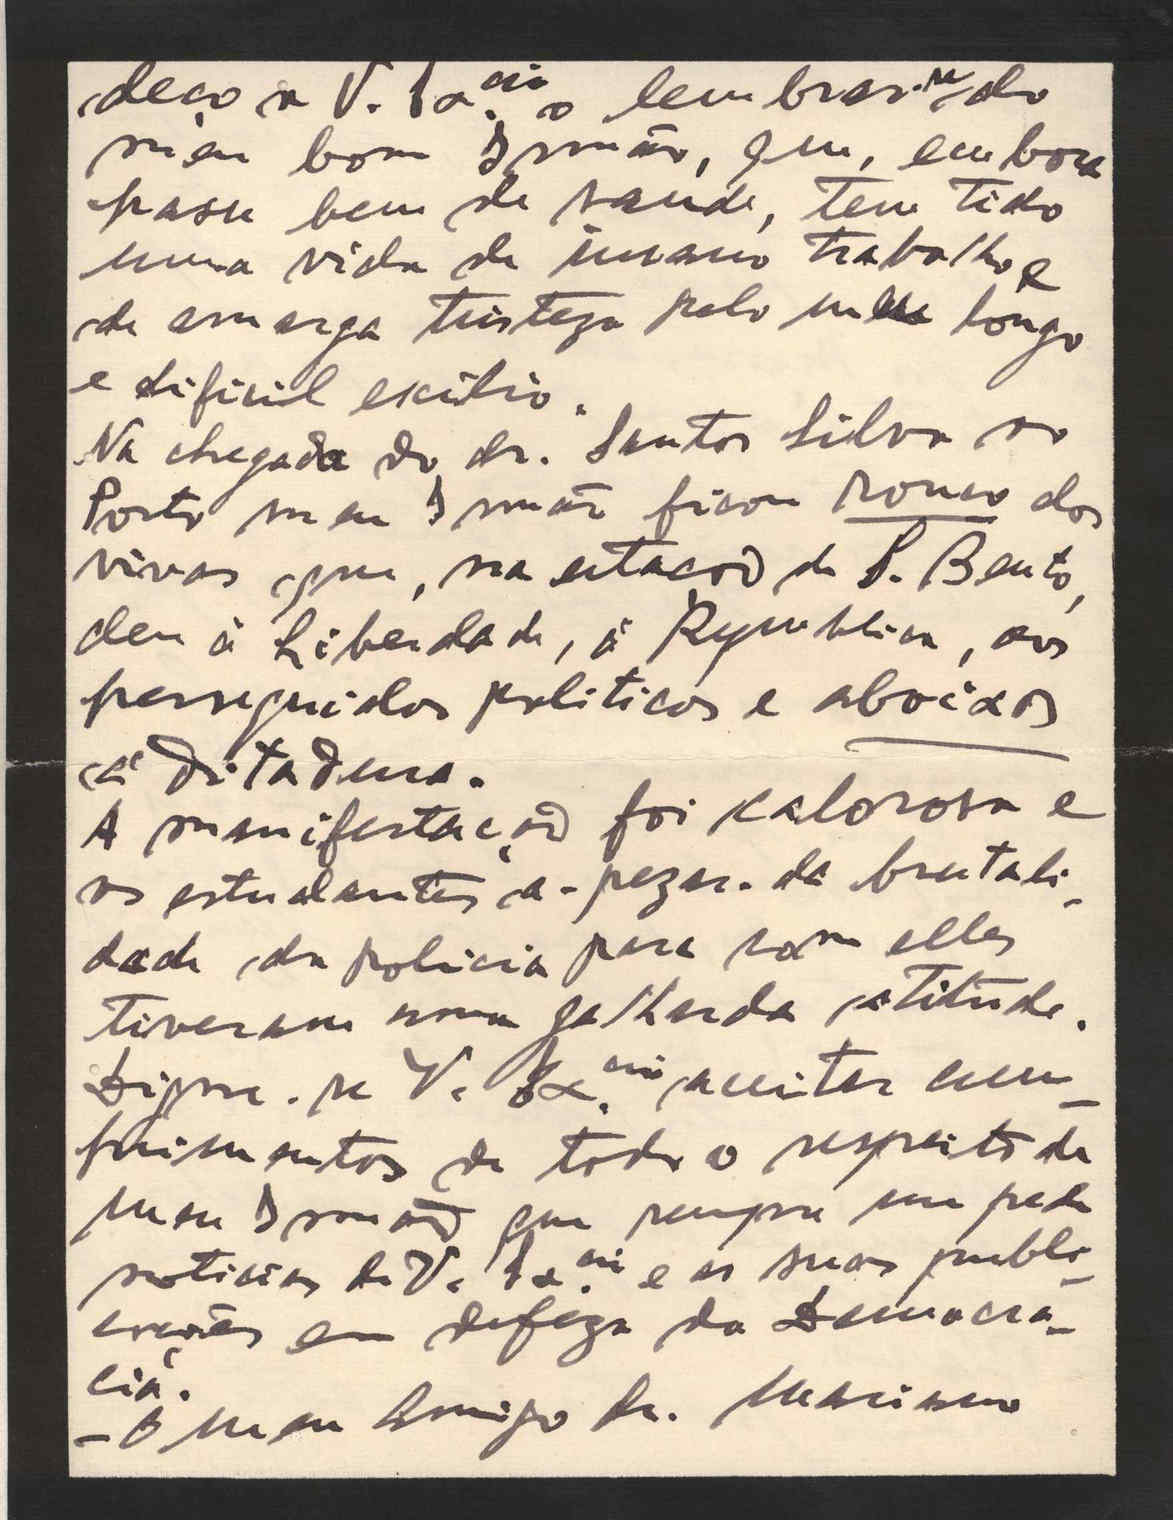 deço a V. Ex.cia o lembrar-se do
meu bom Irmão, que, embora
passe bem de saude, tem tido
uma vida de insano trabalho e
de amarga tristeza pelo meu longo
e dificil exilio.
Na chegada do dr. Santos Silva ao
Porto meu Irmão ficou rouco dos
vivas que, na estação de S. Bento,
deu á Liberdade, á Republica, aos
perseguidos politicos e abaixos
á Ditadura.
A manifestação foi calorosa e
os estudantes a-pezar-da brutali-
dade da policia para com elles
tiveram uma galharda atitude.
Digne-se V. Ex.cia aceitar cum-
primentos de todo o respeito de
meu Irmão que sempre me pede
noticias de V. Ex.cia e as suas publi-
cações em defeza da Democra-
cia.
- O meu Amigo Dr. Marciano